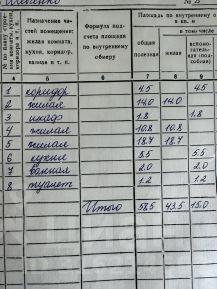 Назначение частей помещения: жилая комната, кухня, коридор, чалиса и т. п.
Формула подсчета площади по внутреннему обмеру
Площадь по внутреннему о
в кв. м
общая полезная
в том числе
жилая
вспомогательная (подсобная)
4 5 6 7 8 9
1 коридор 4.5 4.5
2 жилая 14.0 14.0
3 шкаф 1.8 1.8
4 жилая 10.8 10.8
5 жилая 18.7 18.7
6 кухни 5.5 5.5
7 ванная 2.0 2.0
8 туалет 1.2 1.2
Итого 58.5 43.5 15.0